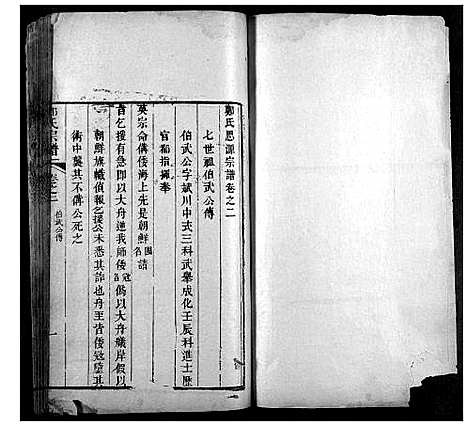 鄭氏思源宗譜卷之二
七世祖伯武公傳
伯武公字斌川中式三科武舉成化壬辰科進士歷
官指揮奉
英宗命備倭海上先是朝鮮國請
首乞援有急即以大舟逆我師倭寇偽以大舟艤岸假以
朝鮮旗幟偵報乞援公未悉其詐也舟至皆倭寇登其
術中襲其不備公死之
鄭氏宗譜
卷之二
伯武公傳
一